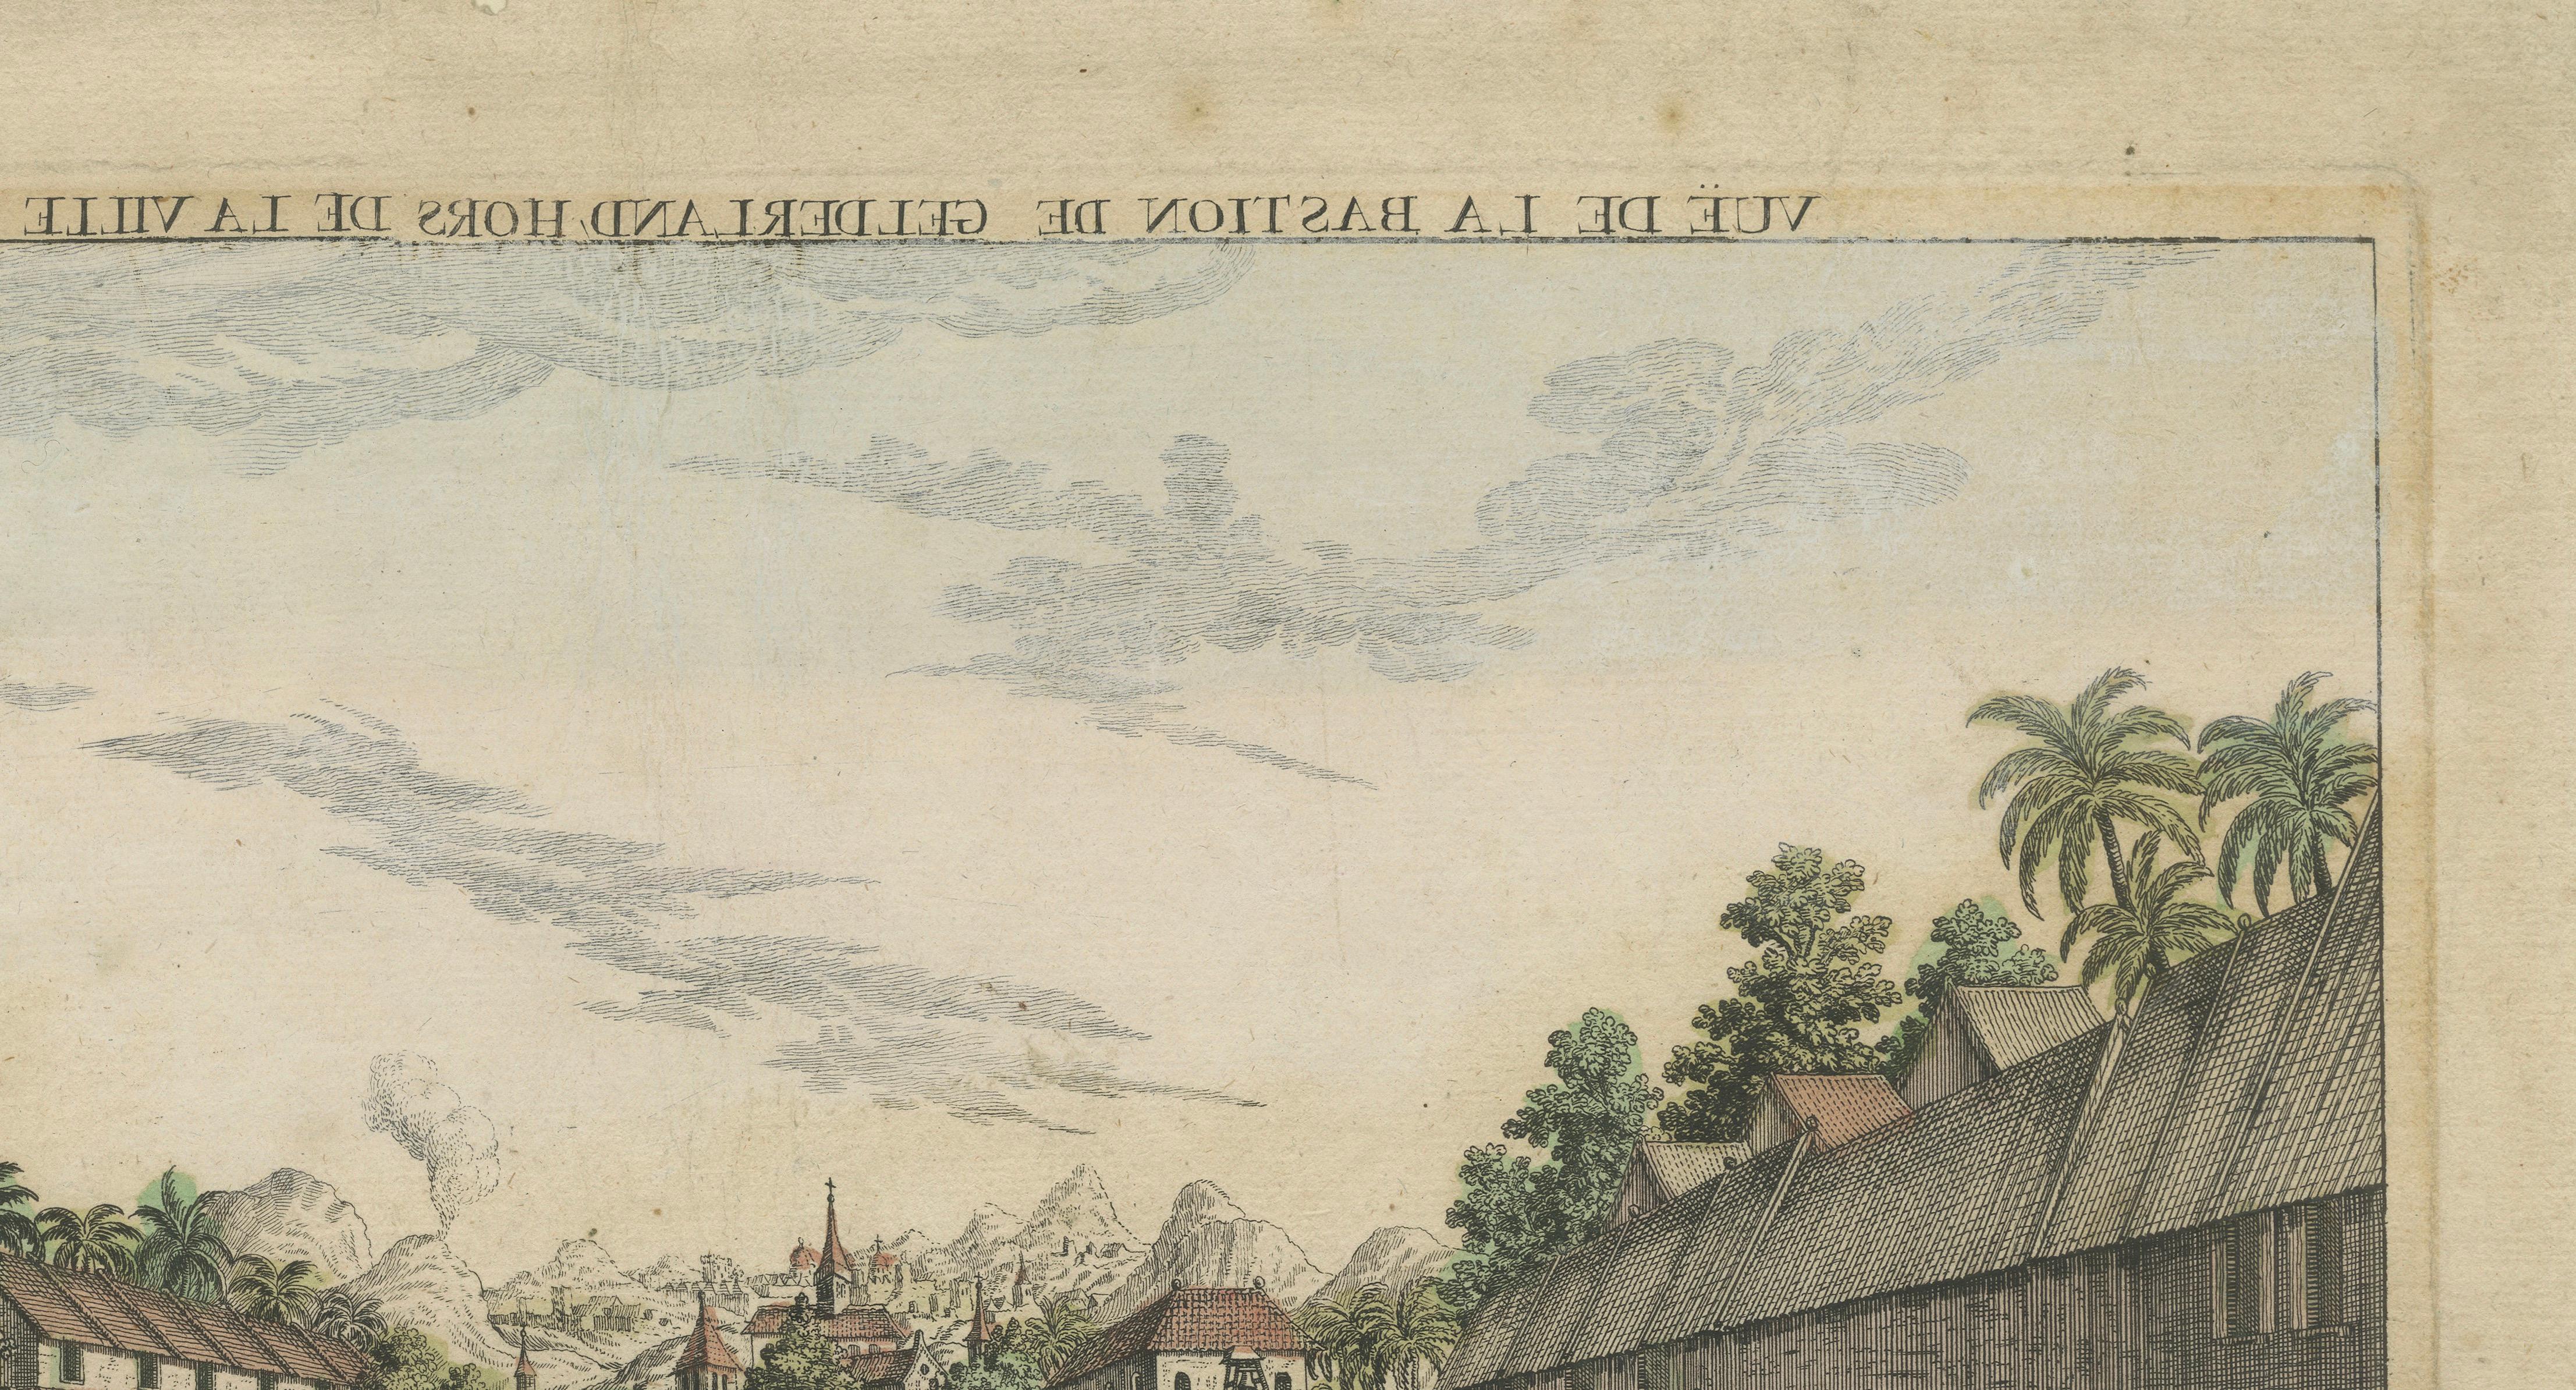 VUË DE LA BASTION DE GELDERLAND, HORS DE LA VILLE